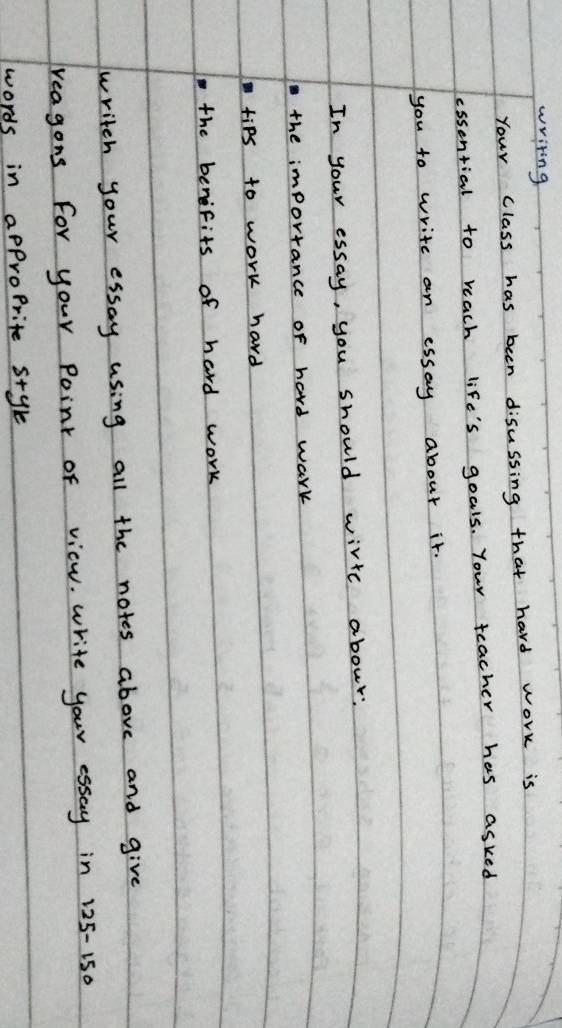 writing
Your class has been disussing that hard work is
essential to reach life's goals. Your teacher has asked
you to write an essay about it.
In your essay, you should wirte about:
▪ the importance of hard wark
▪ tips to work hard
▪ the benifits of hard work
writeh your essay using all the notes above and give
reagons for your point of view. write your essay in 125-150
words in approprite style